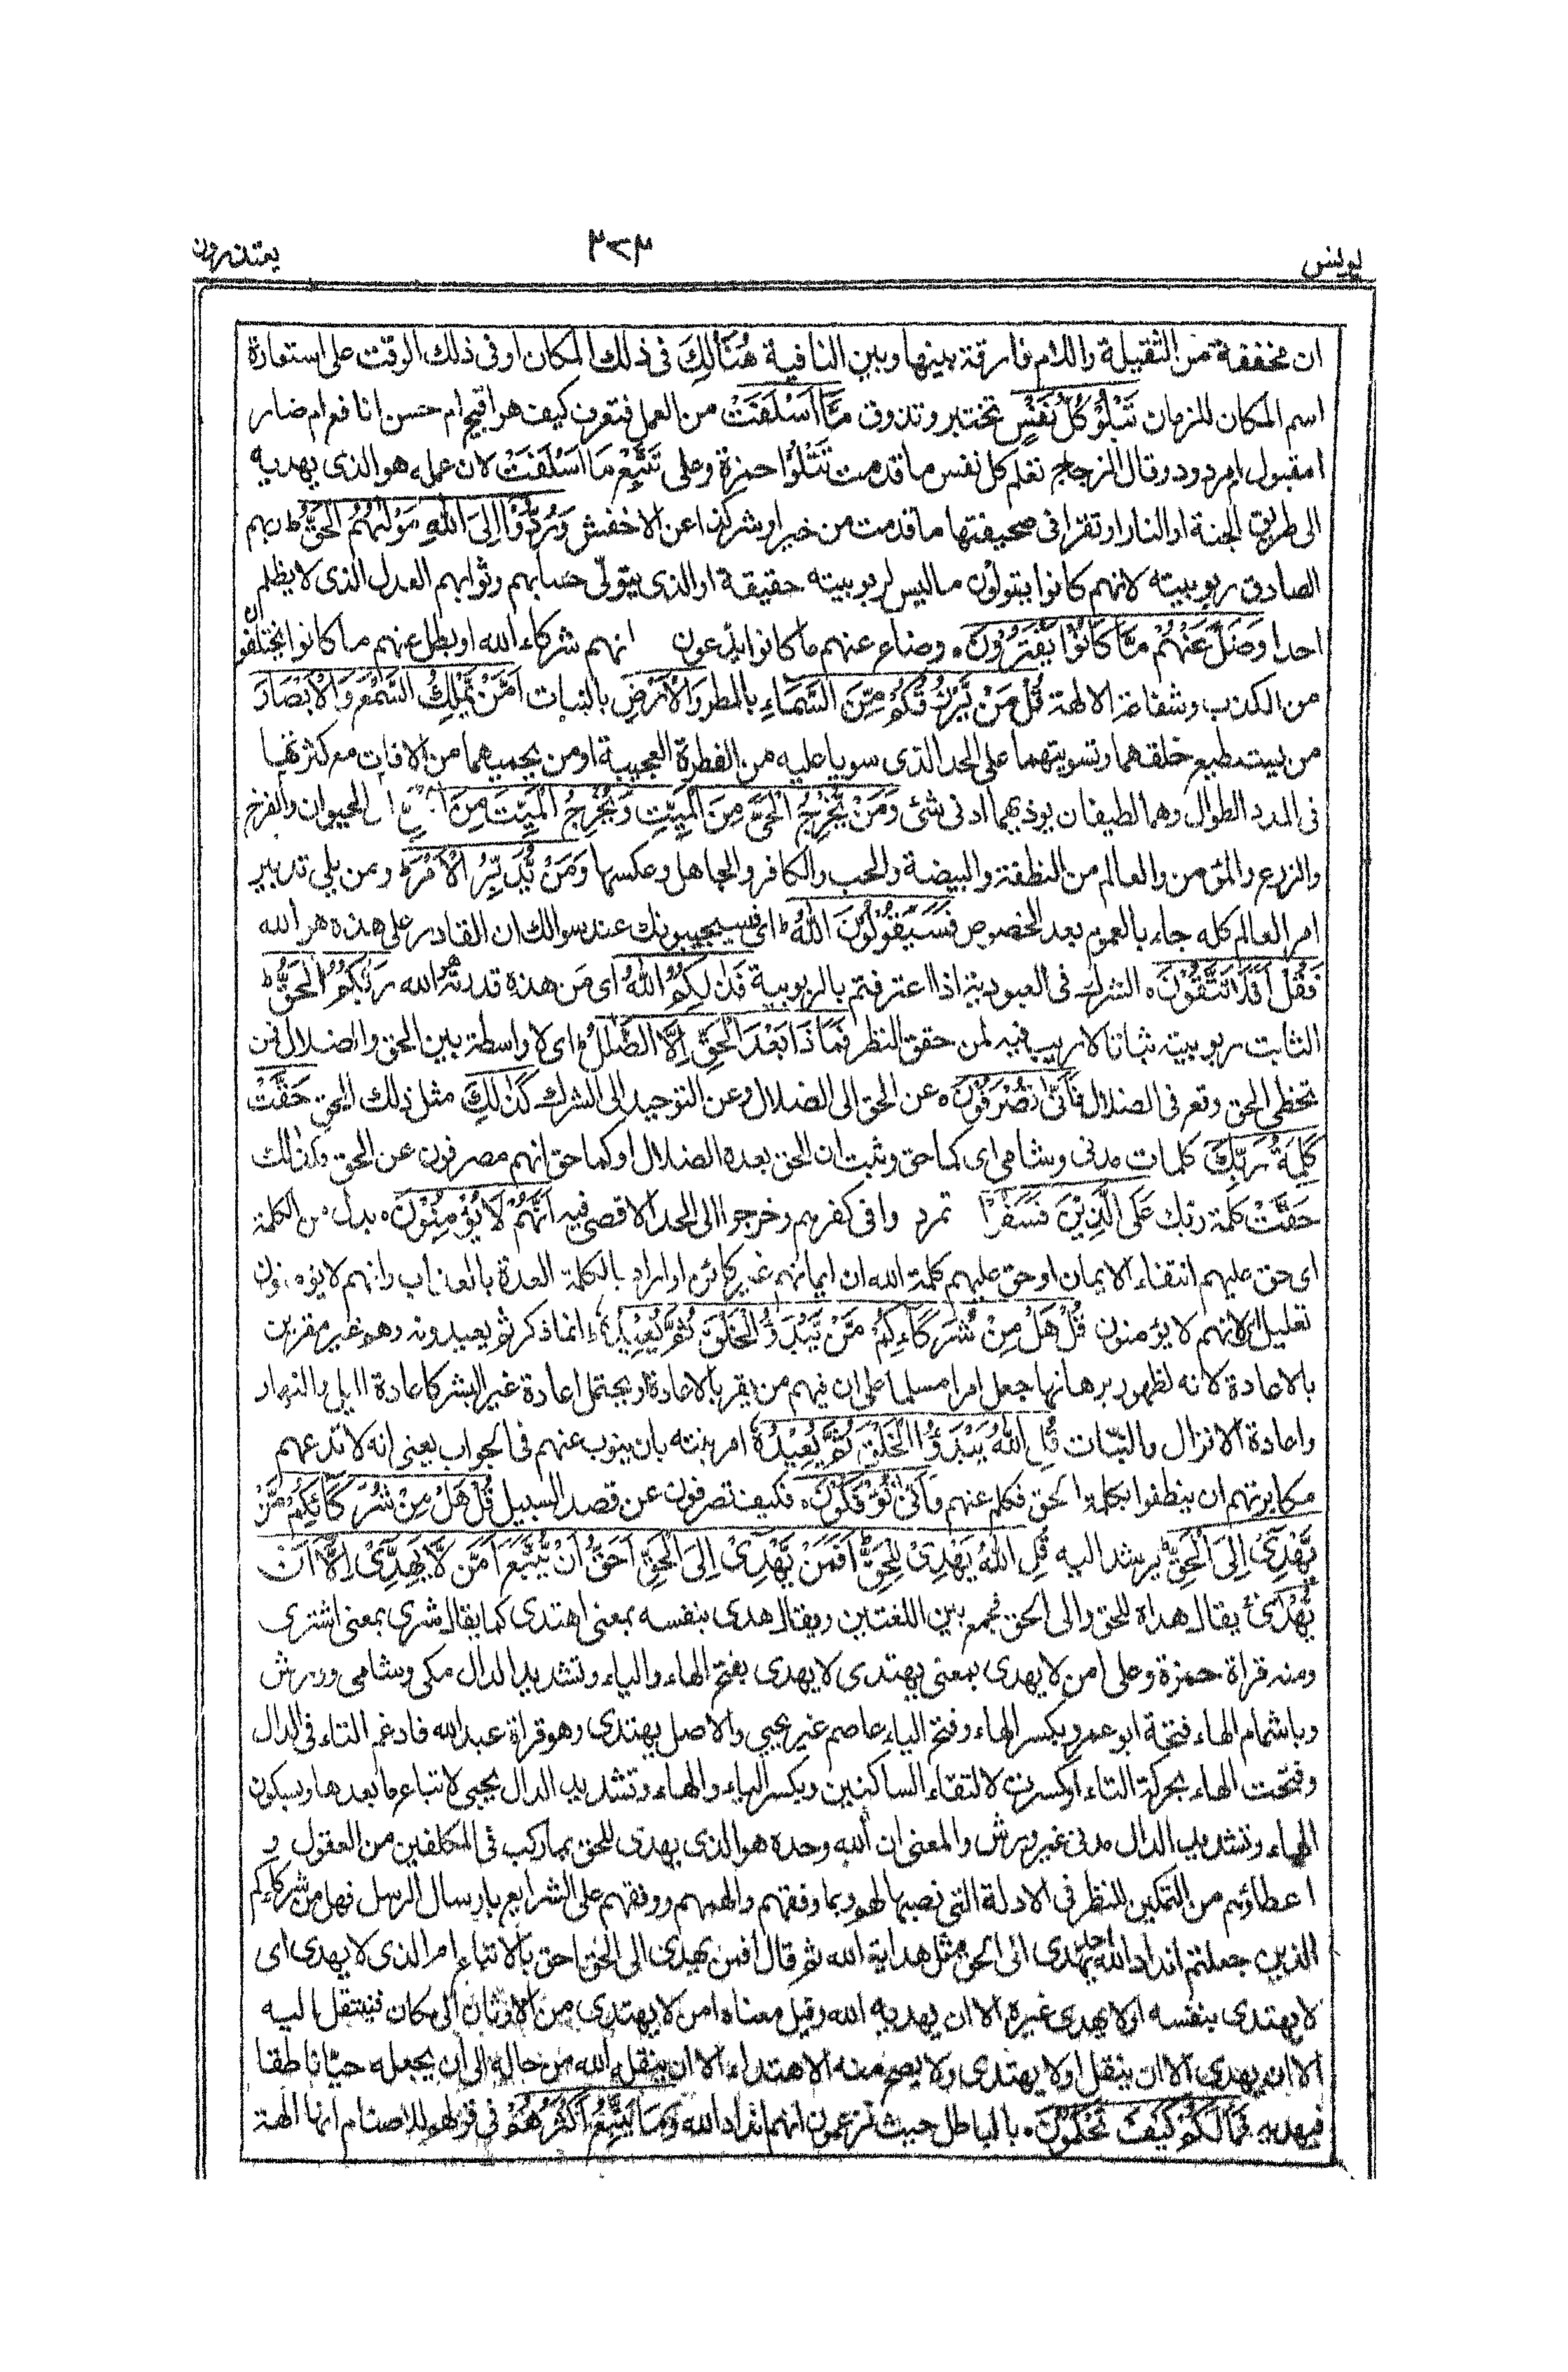 يونس
٣٧٣
يعتذرون
ان مخففة من الثقيلة واللام فارقة بينها وبين النافية هُنَالِكَ فى ذلك المكان او فى ذلك الوقت على استعارة
اسم المكان للزمان تَبْلُوْ كُلُّ نَفْسٍ تختبر وتذوق مَّا اَسْلَفَتْ من العمل فتعرف كيف هو اقبيح ام حسن انافع ام ضار
امقبول ام مردود وقال الزجاج تعلم كل نفس ما قدمت تَتْلُوْا حمزة وعلى تَتَّبِعُ مَا اَسْلَفَتْ لان عمله هو الذى يهديه
الى طريق الجنة او النار او تقرأ فى صحيفتها ما قدمت من خير او شر كذا عن الاخفش وَرُدُّوْا اِلَى اللّٰهِ مَوْلٰىهُمُ الْحَقِّ ط ربهم
الصادق ربوبيته لانهم كانوا يتولون ما ليس لربوبيته حقيقة او الذى يتولى حسابهم وثوابهم العدل الذى لا يظلم
احدا وَضَلَّ عَنْهُمْ مَّا كَانُوْا يَفْتَرُوْنَ ٥ وضاع عنهم ما كانوا يدعون انهم شركاء الله او بطل عنهم ما كانوا يختلقون
من الكذب وشفاعة الالهة قُلْ مَنْ يَّرْزُقُكُمْ مِّنَ السَّمَاءِ بالمطر وَالْاَرْضِ بالنبات اَمَّنْ يَّمْلِكُ السَّمْعَ وَالْاَبْصَارَ
من يستطيع خلقهما وتسويتهما على الحد الذى سويا عليه من الفطرة العجيبة او من يحميهما من الافات مع كثرتها
فى المدد الطوال وهما لطيفان يوذيهما ادنى شئ وَمَنْ يُّخْرِجُ الْحَيَّ مِنَ الْمَيِّتِ وَيُخْرِجُ الْمَيِّتَ مِنَ الحيوان والفرخ
والزرع والمؤمن والعالم من النطفة والبيضة والحب والكافر والجاهل وعكسها وَمَنْ يُّدَبِّرُ الْاَمْرَ ط ومن يلى تدبير
امر العالم كله جاء بالعموم بعد الخصوص فَسَيَقُوْلُوْنَ اللّٰهُ ط اى فسيجيبونك عند سوالك ان القادر على هذه هو الله
فَقُلْ اَفَلَا تَتَّقُوْنَ ٥ الشرك فى العبودية اذا اعترفتم بالربوبية فَذٰلِكُمُ اللّٰهُ اى من هذه قدرته هو الله رَبُّكُمُ الْحَقُّ ط
الثابت ربوبيته ثباتا لا ريب فيه لمن حقق النظر فَمَاذَا بَعْدَ الْحَقِّ اِلَّا الضَّلٰلُ ط اى لا واسطة بين الحق والضلال فمن
تخطى الحق وقع فى الضلال فَاَنّٰى تُصْرَفُوْنَ ٥ عن الحق الى الضلال وعن التوحيد الى الشرك كَذٰلِكَ مثل ذلك الحق حَقَّتْ
كَلِمَةُ رَبِّكَ كلمات مدنى وشامى اى كما حق وثبت ان الحق بعده الضلال او كما حق انهم مصرفون عن الحق وكذالك
حَقَّتْ كلمة ربك عَلَى الَّذِيْنَ فَسَقُوْا تمردوا فى كفرهم وخرجوا الى الحد الاقصى فيه اَنَّهُمْ لَا يُؤْمِنُوْنَ ٥ بدل من الكلمة
اى حق عليهم انتفاء الايمان او حق عليهم كلمة الله ان ايمانهم غير كائن او اراد بالكلمة العدة بالعذاب وانهم لا يؤمنون
تعليل اى لانهم لا يؤمنون قُلْ هَلْ مِنْ شُرَكَاءِكُمْ مَّنْ يَّبْدَؤُا الْخَلْقَ ثُمَّ يُعِيْدُهٗ ط انما ذكر ثم يعيده وهم غير مقرين
بالاعادة لانه لظهور برهانها جعل امرا مسلما على ان فيهم من يقر بالاعادة او يحتمل اعادة غير البشر كاعادة الليل والنهار
واعادة الانزال والنبات قُلِ اللّٰهُ يَبْدَؤُا الْخَلْقَ ثُمَّ يُعِيْدُهٗ امر نبيه بان ينوب عنهم فى الجواب يعنى انه لا تدعهم
مكابرتهم ان ينطقوا بكلمة الحق فكلم عنهم فَاَنّٰى تُؤْفَكُوْنَ ٥ فكيف تصرفون عن قصد السبيل قُلْ هَلْ مِنْ شُرَكَائِكُمْ مَّنْ
يَّهْدِىْ اِلَى الْحَقِّ ط يرشد اليه قُلِ اللّٰهُ يَهْدِىْ لِلْحَقِّ ط اَفَمَنْ يَّهْدِىْ اِلَى الْحَقِّ اَحَقُّ اَنْ يُّتَّبَعَ اَمَّنْ لَّا يَهِدِّىْ اِلَّا اَنْ
يُّهْدٰى يقال هداه للحق والى الحق فجمع بين اللغتين ويقال هدى بنفسه بمعنى اهتدى كما يقال شرى بمعنى اشترى
ومنه قراة حمزة وعلى امن لا يهدى بمعنى يهتدى لا يهدى بفتح الهاء والياء وتشديد الدال مكى وشامى وورش
وباشمام الهاء فتحة ابو عمرو وبكسر الهاء وفتح الياء عاصم غير يحيى والاصل يهتدى وهو قراة عبد الله فادغم التاء فى الدال
وفتحت الهاء بحركة التاء او كسرت لالتقاء الساكنين وبكسر الياء والهاء وتشديد الدال يحيى لاتباع ما بعدها وبسكون
الهاء وتشديد الدال مدنى غير ورش والمعنى ان الله وحده هو الذى يهدى للحق بما ركب فى المكلفين من العقول و
اعطائهم من التمكين للنظر فى الادلة التى نصبها لهم وبما وفقهم والهمهم ووفقهم على الشرايع بارسال الرسل فهل من شركاءكم
الذين جعلتم اندادا لله احد يهدى الى الحق مثل هداية الله ثم قال افمن يهدى الى الحق احق بالاتباع ام الذى لا يهدى اى
لا يهتدى بنفسه او لا يهدى غيره الا ان يهديه الله وقيل معناه امن لا يهتدى من الاوثان الى مكان فينتقل اليه
الا ان يهدى الا ان ينقل او لا يهتدى ولا يصح منه الاهتداء الا ان ينقله الله من حاله الى ان يجعله حيا ناطقا
فيهديه فَمَا لَكُمْ كَيْفَ تَحْكُمُوْنَ ٥ بالباطل حيث تزعمون انهم انداد الله وَمَا يَتَّبِعُ اَكْثَرُهُمْ فى قولهم للاصنام انها الهة